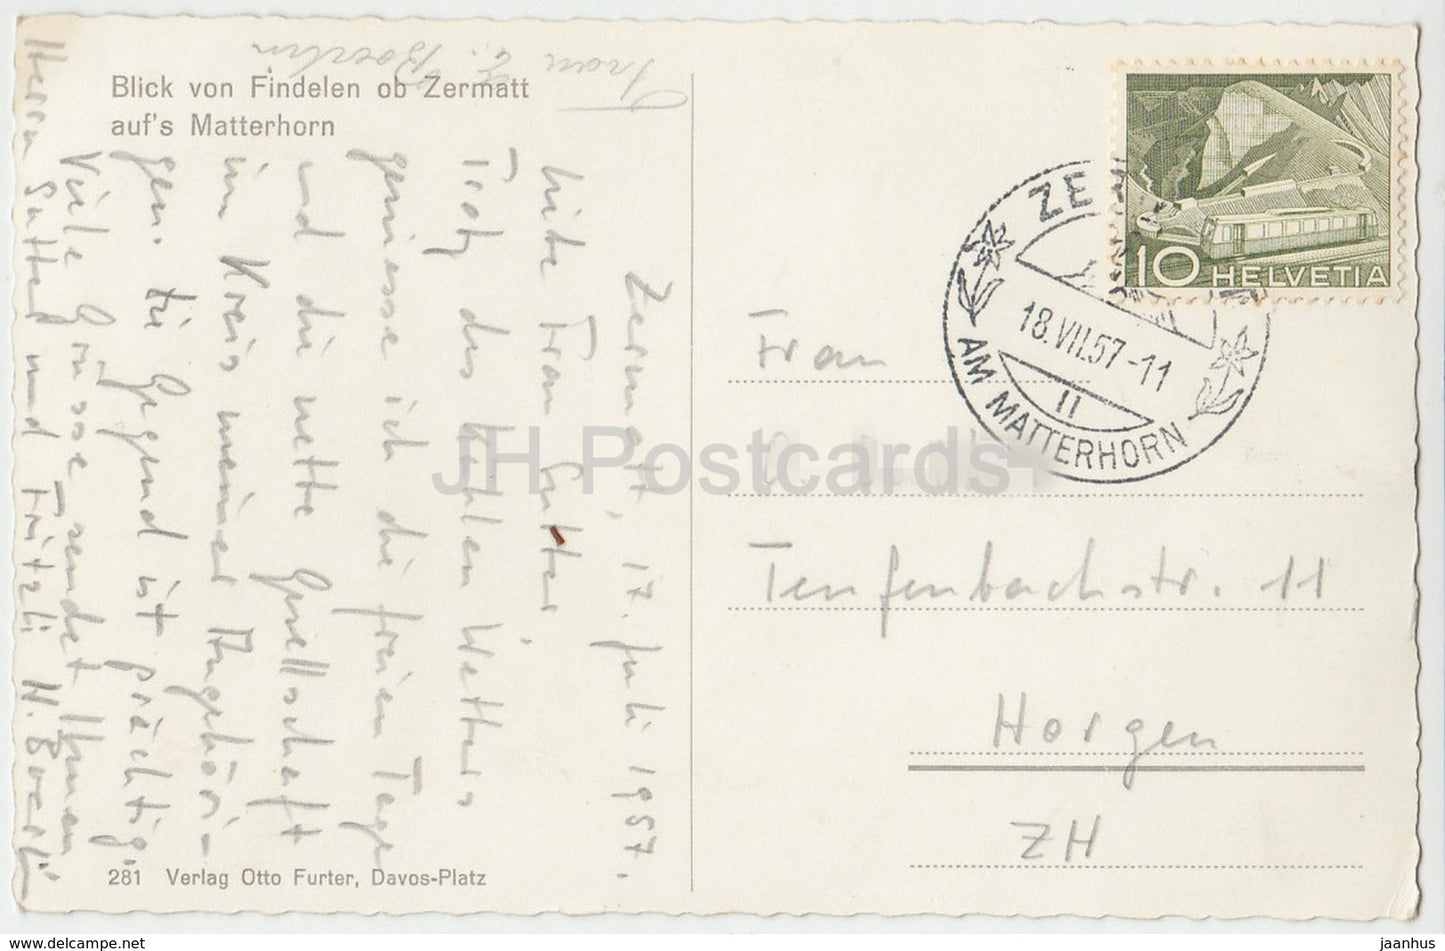 Blick von Findelen ob Zermatt
auf's Matterhorn
Frau
Zermatt, 17. Juli 1957.
Liebe Frau Sutter
Trotz des kühlen Wetters
geniesse ich die freien Tage
und die nette Gesellschaft
im Kreis meiner Angehöri-
gen. Die Gegend ist prächtig.
Viele Grüsse sendet Ihnen,
Herrn Sutter und Fritzli H. Boerlin
281 Verlag Otto Furter, Davos-Platz
10 HELVETIA
ZER
18.VII.57-11
II
AM MATTERHORN
Frau
Teufenbachstr. 11
Horgen
ZH
JH Postcards
hip.com
jaanhus